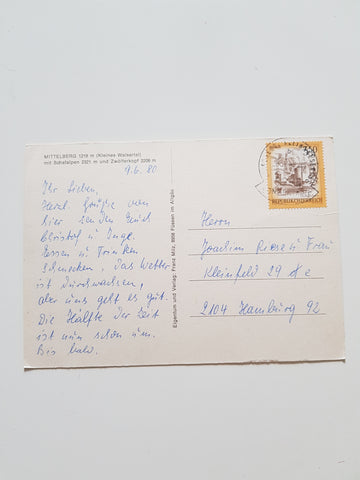 MITTELBERG 1218 m (Kleines Walsertal)
mit Schafalpen 2321 m und Zwölferkopf 2206 m
9.6.80
Ihr Lieben,
Herzl. Grüße von
hier senden Euch
Christoph u Inge.
Essen u Trinken
schmecken, das Wetter
ist durchwachsen,
aber uns geht es gut.
Die Hälfte der Zeit
ist nun schon um.
Bis bald.
Eigentum und Verlag: Franz Milz, 8958 Füssen im Allgäu
REPUBLIK ÖSTERREICH
Herrn
Joachim Riese u Frau
Kleinfeld 29
2104 Hamburg 92